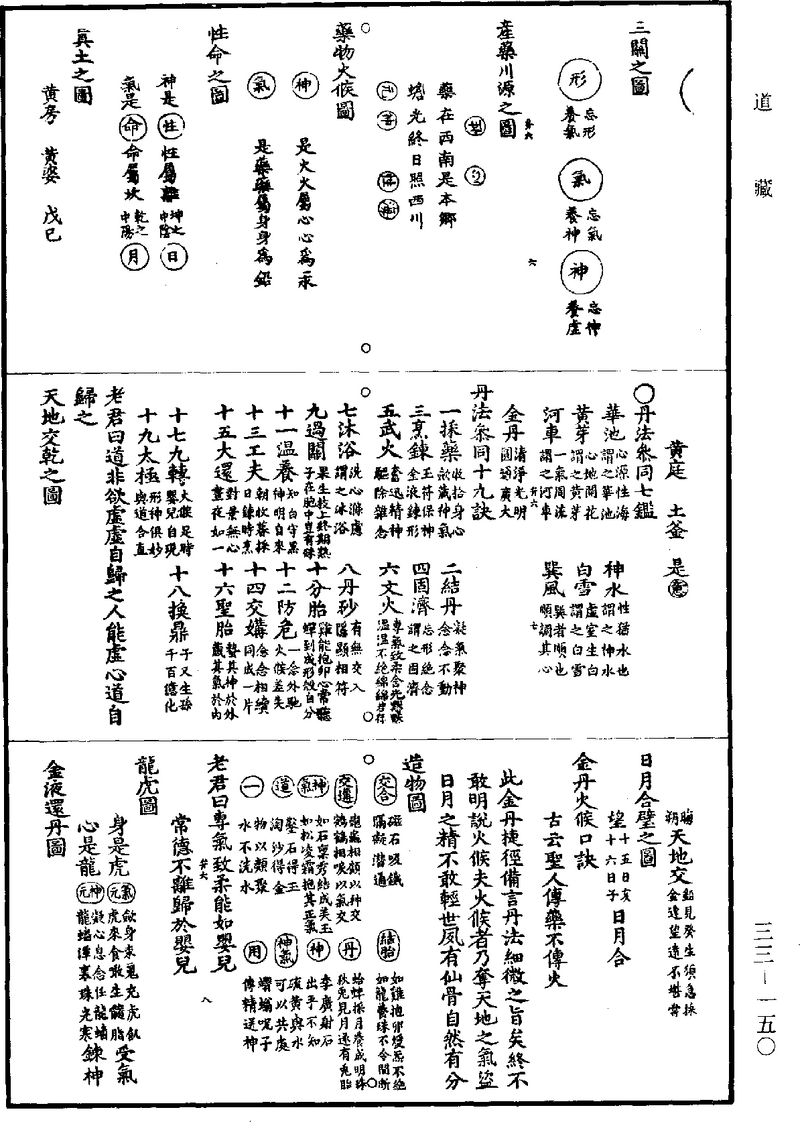 道藏
三關之圖
形 忘形養氣 氣 忘氣養神 神 忘神養虛
產藥川源之圖
藥在西南是本鄉
蟾光終日照西川
藥物火候圖
神 是火火屬心心爲汞
氣 是藥藥屬身身爲鉛
性命之圖
神是性性屬離 坤之中陰 日
氣是命命屬坎 乾之中陽 月
真土之圖
黃房 黃婆 戊己
黃庭 土釜 是意
丹法參同七鑑
華池 心源性海謂之華池 神水 性猶水也謂之神水
黃芽 心地開花謂之黃芽 白雪 虛室生白謂之白雪
河車 一氣周流謂之河車 巽風 巽者順也順調其心
金丹 清淨光明圓通廣大
丹法參同十九訣
一採藥 收拾身心斂藏神氣 二結丹 凝氣聚神念念不動
三烹鍊 玉符保神金液鍊形 四固濟 忘形絕念謂之固濟
五武火 奮迅精神驅除雜念 六文火 專氣致柔含光默默溫溫不絕綿綿若存
七沐浴 洗心滌慮謂之沐浴 八丹砂 有無交入隱顯相符
九過關 果生枝上終期熟子在胞中豈有殊 十分胎 雞能抱卵心常聽蟬到成形殼自分
十一溫養 知白守黑神明自來 十二防危 一念外馳火候差失
十三工夫 朝收暮採日鍊時烹 十四交媾 念念相續同成一片
十五大還 對景無心晝夜如一 十六聖胎 蟄其神於外藏其氣於內
十七九轉 火候足時嬰兒自現 十八換鼎 子又生孫千百億化
十九太極 形神俱妙與道合真
老君曰道非欲虛虛自歸之人能虛心道自
歸之
天地交乾之圖
日月合璧之圖
晦朔 天地交 鉛見癸生須急採金逢望遠不堪嘗
望 十五日亥十六日子 日月合
金丹火候口訣
古云聖人傳藥不傳火
此金丹捷徑備言丹法細微之旨矣終不
敢明說火候夫火候者乃奪天地之氣盜
日月之精不敢輕世夙有仙骨自然有分
造物圖
交合 磁石吸鐵隔礙潛通 結胎 如雞抱卵煖炁不絕如龍養珠不令間斷
交媾 龜鼈相顧以神交鶴鶴相唳以氣交 丹 蛤蚌採月養成明珠秋兔見月遂有兔胎
神氣 如石禀秀結成美玉如松凌霜抱其正氣 神 李廣射石出乎不知
道 鑿石得玉淘沙得金 神氣 硫黃與水可以共處
一 物以類聚水不洗水 用 螟蛉呪子傳精送神
老君曰專氣致柔能如嬰兒
常德不離歸於嬰兒
龍虎圖
身是虎 元氣 歛身束鬼充虎飢虎來食敢生髓脂 受氣
心是龍 元神 凝心息念任龍蟠龍蟠潭裏珠光寒 鍊神
金液還丹圖
三三—一五〇